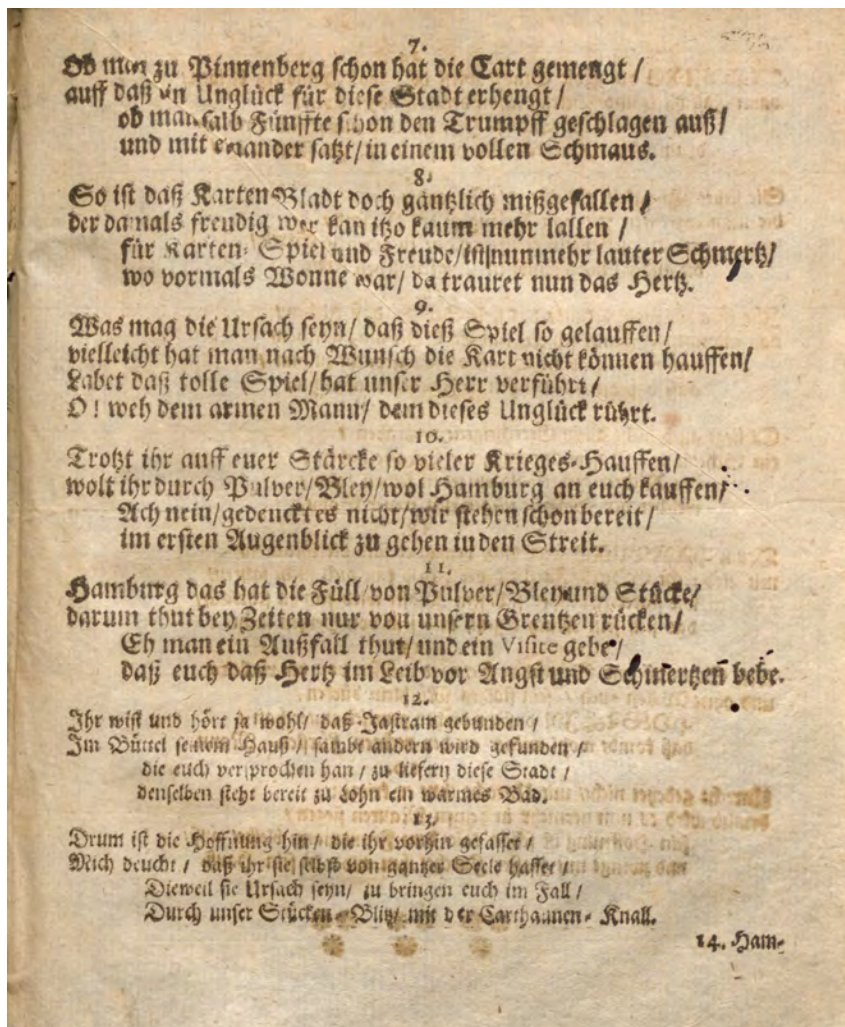 7.
Ob man zu Pinnenberg schon hat die Cart gemengt /
auff daß ein Unglück für diese Stadt erhengt /
ob man salb Fünffte schon den Trumpff geschlagen auß /
und mit einander satzt / in einem vollen Schmaus.
8.
So ist daß Karten-Bladt doch gäntzlich mißgefallen /
der damals freudig wer kan itzo kaum mehr lallen /
für Karten-Spiel und Freude / ist nunmehr lauter Schmertz /
wo vormals Wonne war / da trauret nun das Hertz.
9.
Was mag die Ursach seyn / daß dieß Spiel so gelauffen /
vielleicht hat man nach Wunsch die Kart nicht können hauffen /
Labet daß tolle Spiel / hat unser Herr verführt /
O! weh dem armen Mann / dem dieses Unglück rührt.
10.
Trotzt ihr auff euer Stärcke so vieler Krieges-Hauffen /
wolt ihr durch Pulver / Bley / wol Hamburg an euch kauffen /
Ach nein / gedenckt es nicht / wir stehen schon bereit /
im ersten Augenblick zu gehen in den Streit.
11.
Hamburg das hat die Füll von Pulver / Bley und Stücke /
darum thut bey Zeiten nur von unsern Grentzen rücken /
Eh man ein Außfall thut / und ein Visite gebe /
daß euch daß Hertz im Leib vor Angst und Schmertzen bebe.
12.
Ihr wist und hört ja wohl / daß Jastram gebunden /
Im Büttel seinem Hauß / sambt andern wird gefunden /
die euch versprochen han / zu liefern diese Stadt /
denselben steht bereit zu Lohn ein warmes Bad.
13.
Drum ist die Hoffnung hin / die ihr vorhin gefasset /
Mich deucht / daß ihr sie selbst von gantzer Seele hasset /
Dieweil sie Ursach seyn / zu bringen euch im Fall /
Durch unser Stücken-Blitz / mit der Carthaunen-Knall.
14. Ham-